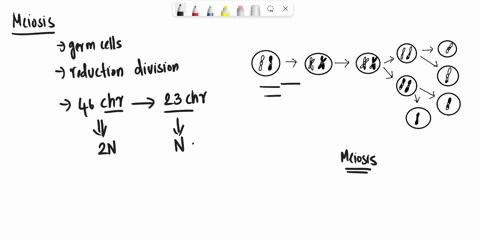 Meiosis
→ germ cells
→ reduction division
→ 46 chr → 23 chr
2N N
Meiosis